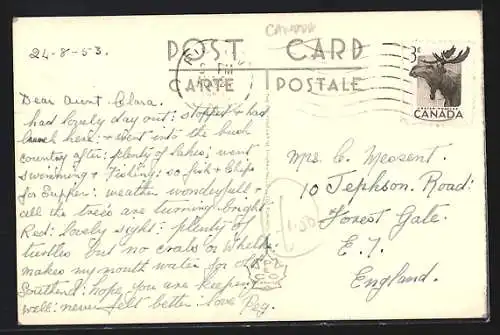 CANADA
24-8-53.
POST CARD
CARTE POSTALE
PM
3c
CANADA
Dear Aunt Clara.
had lovely day out: stopped + had
lunch here: + went into the bush
country after: plenty of lakes: went
swimming + Fishing: so fish + Chips
for Supper: weather wonderfull +
all the trees are turning bright
Red: lovely sight: plenty of
turtles but no crabs or Whelks
makes my mouth water for old
Southend: hope you are keeping
well: never felt better: love Peg.
Mrs. C. Messent.
10 Jephson. Road:
Forest Gate.
E. 7.
England.
1.50